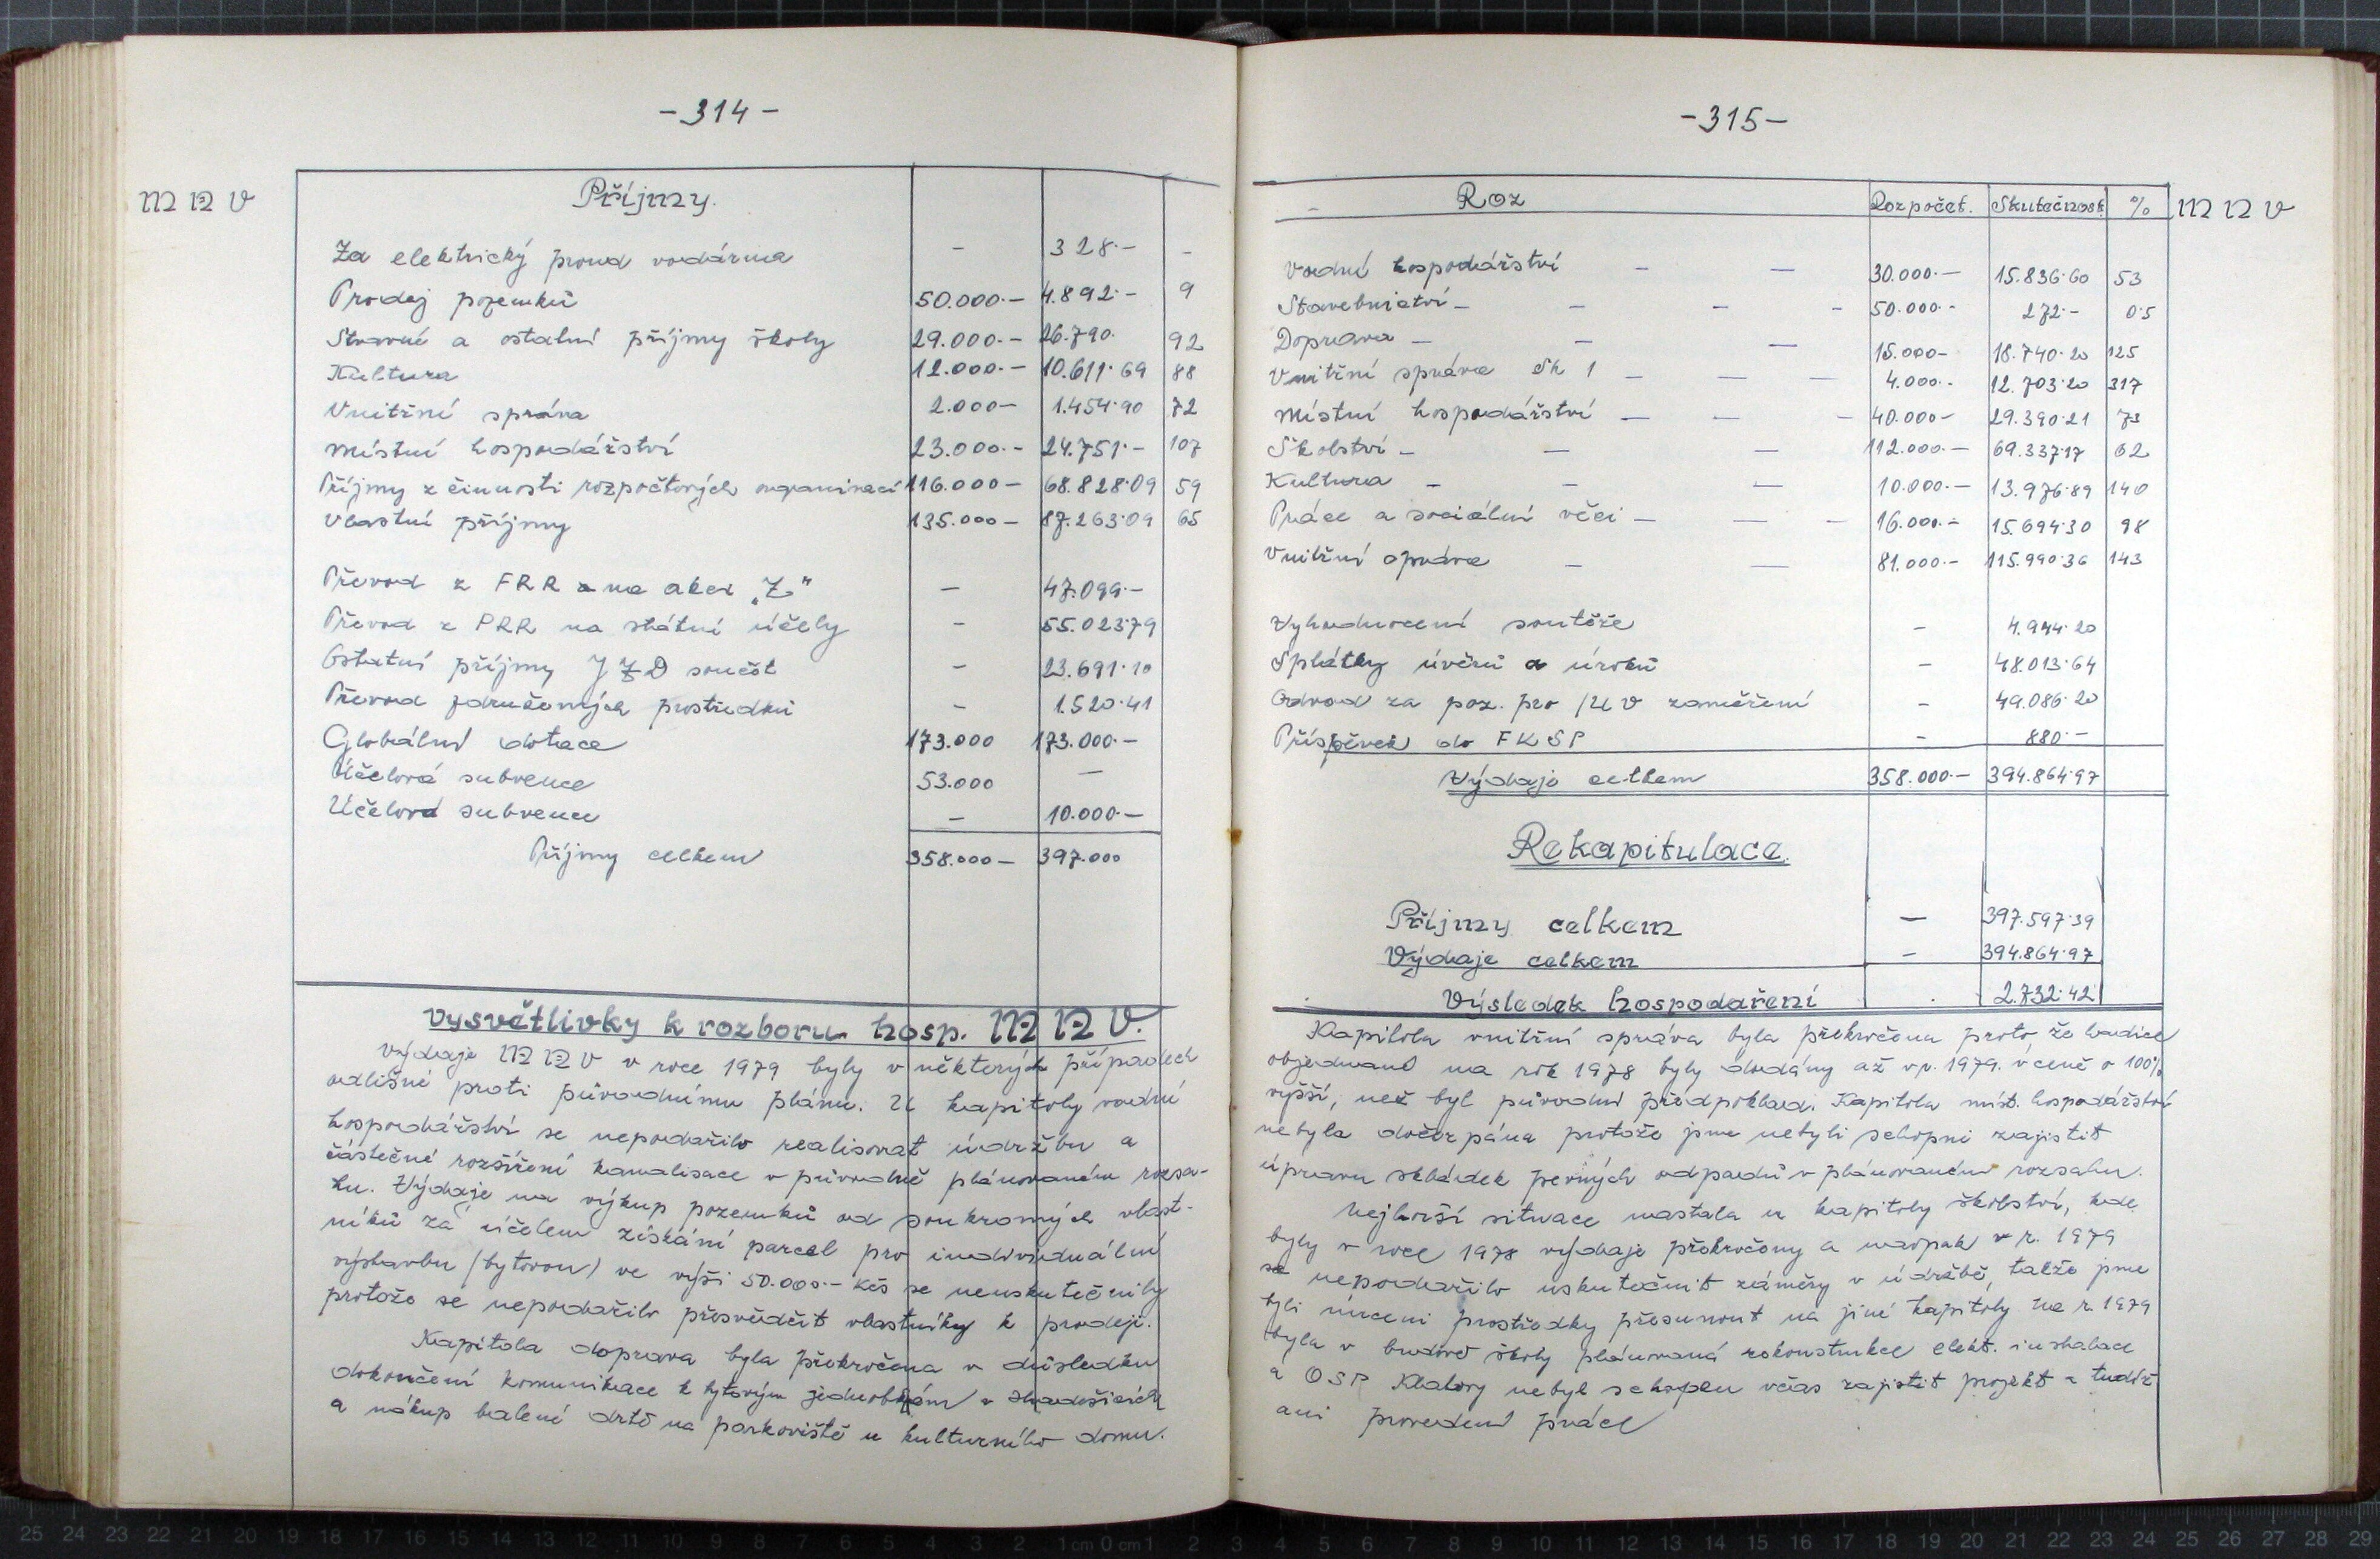 -314-
M N V
Příjmy.
Za elektrický proud vodárna - 328.- -
Prodej pozemků 50.000.- 4.892.- 9
Stravné a ostatní příjmy školy 29.000.- 26.790. 92
Kultura 12.000.- 10.611.69 88
Vnitřní správa 2.000- 1.454.90 72
Místní hospodářství 23.000.- 24.751.- 107
Příjmy z činnosti rozpočtových organinací 116.000- 68.828.09 59
Vlastní příjmy 135.000- 87.263.09 65
Převod z FRR a na akci „Z" - 47.099.-
Převod z FRR na státní účely - 55.023.79
Ostatní příjmy JZD součst - 23.691.10
Převod združených prostředků - 1.520.41
Globální dotace 173.000 173.000.-
Účelová subvence 53.000 —
Účelová subvence - 10.000.-
Příjmy celkem 358.000- 397.000
Vysvětlivky k rozboru hosp. M N V.
Výdaje M N V v roce 1979 byly v některých případech
odlišné proti původnímu plánu. U kapitoly vodní
hospodářství se nepodařilo realisovat údržbu a
částečné rozšíření kanalisace v původně plánovaném rozsa-
hu. Výdaje na výkup pozemků od soukromých vlast-
níků za účelem získání parcel pro individuální
výstavbu (bytovou) ve výši 50.000.- Kčs se neuskutečnily
protože se nepodařilo přesvědčit vlastníky k prodeji.
Kapitola doprava byla překročena v důsledku
dokončení komunikace k bytovým jednotkám v
a nákup balené drtě na parkoviště u kulturního domu.
-315-
M N V
Roz Rozpočet. Skutečnost %
Vodní hospodářství - — 30.000.- 15.836.60 53
Stavebnictví - - - - 50.000.- 272.- 0.5
Doprava - - — 15.000- 18.740.20 125
Vnitřní správa Sk 1 - — — 4.000.- 12.703.20 317
Místní hospodářství — — - 40.000- 29.390.21 73
Školství - — — 112.000.- 69.337.17 62
Kultura - - — 10.000.- 13.976.89 140
Práce a sociální věci - — - 16.000.- 15.694.30 98
Vnitřní správa - — 81.000.- 115.990.36 143
Vyhodnocení soutěže - 4.944.20
Splátky úvěrů a úroků - 48.013.64
Odvod za poz. pro IUV zaměření - 49.086.20
Příspěvek do FKSP - 880.-
Výdaje celkem 358.000.- 394.864.97
Rekapitulace.
Příjmy celkem — 397.597.39
Výdaje celkem - 394.864.97
Výsledek hospodaření . 2.732.42
Kapitola vnitřní správa byla překročena proto, že hadice
objednané na rok 1978 byly dodány až v r. 1979. v ceně o 100%
vyšší, než byl původní předpoklad. Kapitola míst. hospodářství
nebyla dočerpána protože jsme nebyli schopni zajistit
úpravu skládek pevných odpadů v plánovaném rozsahu.
Nejhorší situace nastala u kapitoly školství, kde
byly v roce 1978 výdaje překročeny a naopak v r. 1979
se nepodařilo uskutečnit záměry v údržbě, takže jsme
byli nuceni prostředky přesunout na jiné kapitoly. Na r. 1979
byla v budově školy plánovaná rekonstrukce elekt. instalace
a OSP Klatovy nebyl schopen včas zajistit projekt a tudíž
ani provedení práce